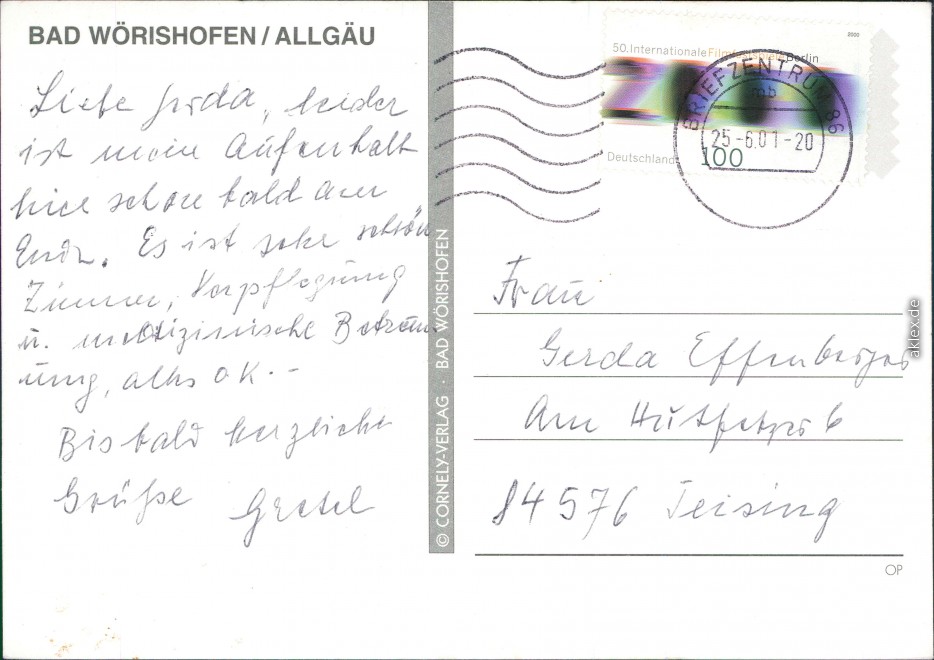 BAD WÖRISHOFEN / ALLGÄU
Liebe Gerda, leider
ist mein Aufenthalt
hier schon bald am
Ende. Es ist sehr schön
Zimmer, Verpflegung
u. medizinische Betreu-
ung, alles OK. -
Bis bald herzliche
Grüße Gretel
© CORNELY-VERLAG · BAD WÖRISHOFEN
50. Internationale Filmfestspiele Berlin
2000
Deutschland 100
BRIEFZENTRUM 86
mb
25-6.01-20
Frau
Gerda Effenberger
Am 6
84576 Teising
OP
aklex.de